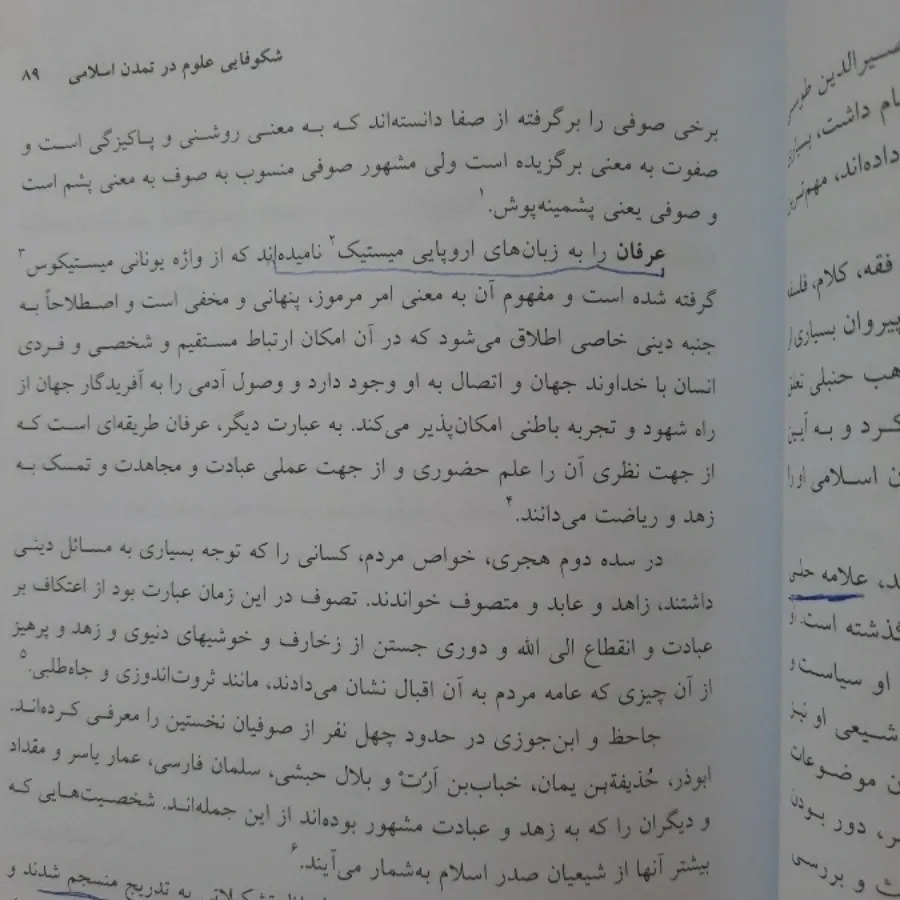 شکوفایی علوم در تمدن اسلامی ۸۹
برخی صوفی را برگرفته از صفا دانسته‌اند که به معنی روشنی و پاکیزگی است و
صفوت به معنی برگزیده است ولی مشهور صوفی منسوب به صوف به معنی پشم است
و صوفی یعنی پشمینه‌پوش.۱
عرفان را به زبان‌های اروپایی میستیک۲ نامیده‌اند که از واژه یونانی میستیکوس۳
گرفته شده است و مفهوم آن به معنی امر مرموز، پنهانی و مخفی است و اصطلاحاً به
جنبه دینی خاصی اطلاق می‌شود که در آن امکان ارتباط مستقیم و شخصی و فردی
انسان با خداوند جهان و اتصال به او وجود دارد و وصول آدمی را به آفریدگار جهان از
راه شهود و تجربه باطنی امکان‌پذیر می‌کند. به عبارت دیگر، عرفان طریقه‌ای است که
از جهت نظری آن را علم حضوری و از جهت عملی عبادت و مجاهدت و تمسک به
زهد و ریاضت می‌دانند.۴
در سده دوم هجری، خواص مردم، کسانی را که توجه بسیاری به مسائل دینی
داشتند، زاهد و عابد و متصوف خواندند. تصوف در این زمان عبارت بود از اعتکاف بر
عبادت و انقطاع الی الله و دوری جستن از زخارف و خوشیهای دنیوی و زهد و پرهیز
از آن چیزی که عامه مردم به آن اقبال نشان می‌دادند، مانند ثروت‌اندوزی و جاه‌طلبی.۵
جاحظ و ابن‌جوزی در حدود چهل نفر از صوفیان نخستین را معرفی کرده‌اند.
ابوذر، حُذیفةبن یمان، خباب‌بن اَرُتْ و بلال حبشی، سلمان فارسی، عمار یاسر و مقداد
و دیگران را که به زهد و عبادت مشهور بوده‌اند از این جمله‌اند. شخصیت‌هایی که
بیشتر آنها از شیعیان صدر اسلام به‌شمار می‌آیند.۶
به تدریج منسجم شدند و
صیرالدین طوسی
ام داشت، بسیاری
داده‌اند، مهم‌ترین
فقه، کلام،
پیروان بسیاری از
هب حنبلی
کرد و به آیین
ن اسلامی او را
د، علامه حلی
گذشته است. و
او سیاست و
شیعی او نیز
ن موضوعات
ر، دور بودن
ث و بررسی